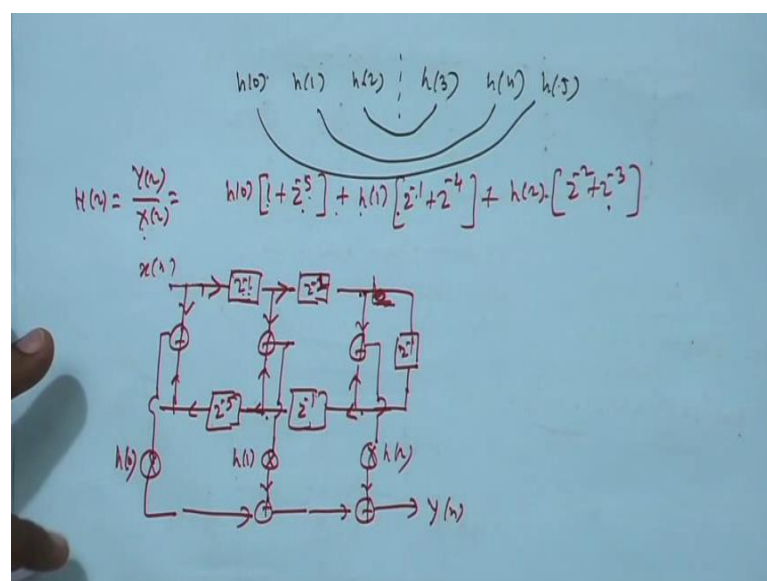 h(0) h(1) h(2) h(3) h(4) h(5)
H(z) = Y(z)/X(z) = h(0) [1 + z^-5] + h(1) [z^-1 + z^-4] + h(2) [z^-2 + z^-3]
x(n)
z^-1 z^-1
+ + + z^-1
z^-5 z^-1
h(0) h(1) h(2)
+ + y(n)